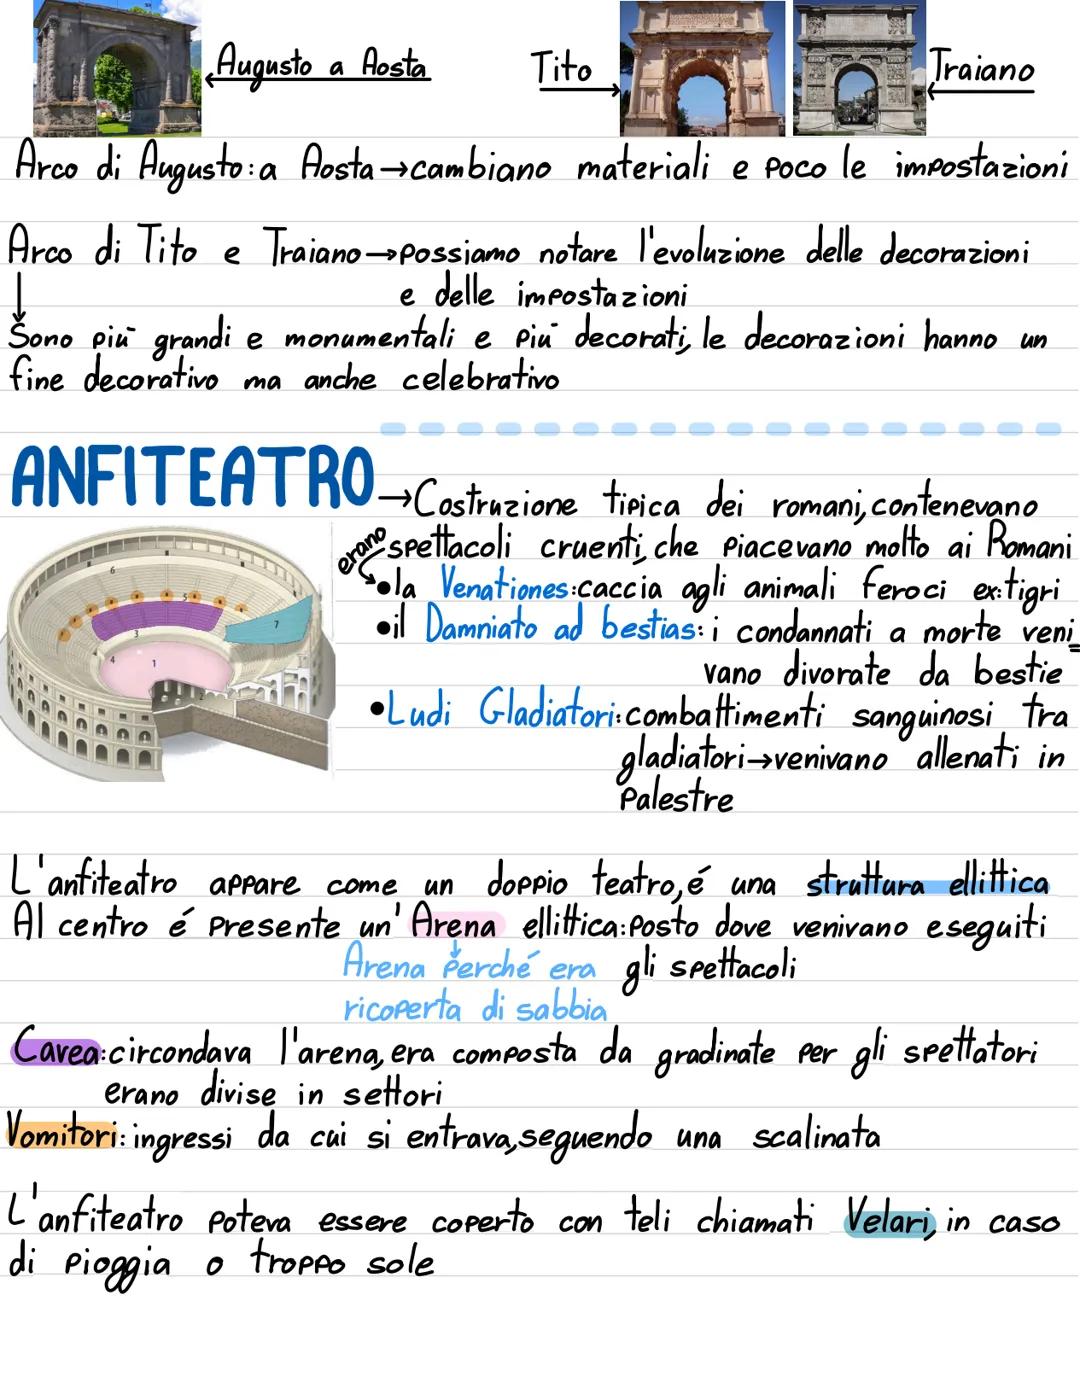 Augusto a Aosta
Tito
Traiano
Arco di Augusto: a Aosta→cambiano materiali e poco le impostazioni
Arco di Tito e Traiano→possiamo notare l'evoluzione delle decorazioni
e delle impostazioni
Sono più grandi e monumentali e più decorati, le decorazioni hanno un
fine decorativo ma anche celebrativo
ANFITEATRO→Costruzione tipica dei romani, contenevano
erano spettacoli cruenti, che piacevano molto ai Romani
•la Venationes: caccia agli animali feroci ex: tigri
•il Damniato ad bestias: i condannati a morte veni_
vano divorate da bestie
•Ludi Gladiatori: combattimenti sanguinosi tra
gladiatori→venivano allenati in
palestre
6
5
7
3
4
1
2
L'anfiteatro appare come un doppio teatro, é una struttura ellittica
Al centro é presente un'Arena ellittica: posto dove venivano eseguiti
Arena perché era gli spettacoli
ricoperta di sabbia
Cavea: circondava l'arena, era composta da gradinate per gli spettatori
erano divise in settori
Vomitori: ingressi da cui si entrava, seguendo una scalinata
L'anfiteatro poteva essere coperto con teli chiamati Velari, in caso
di pioggia o troppo sole